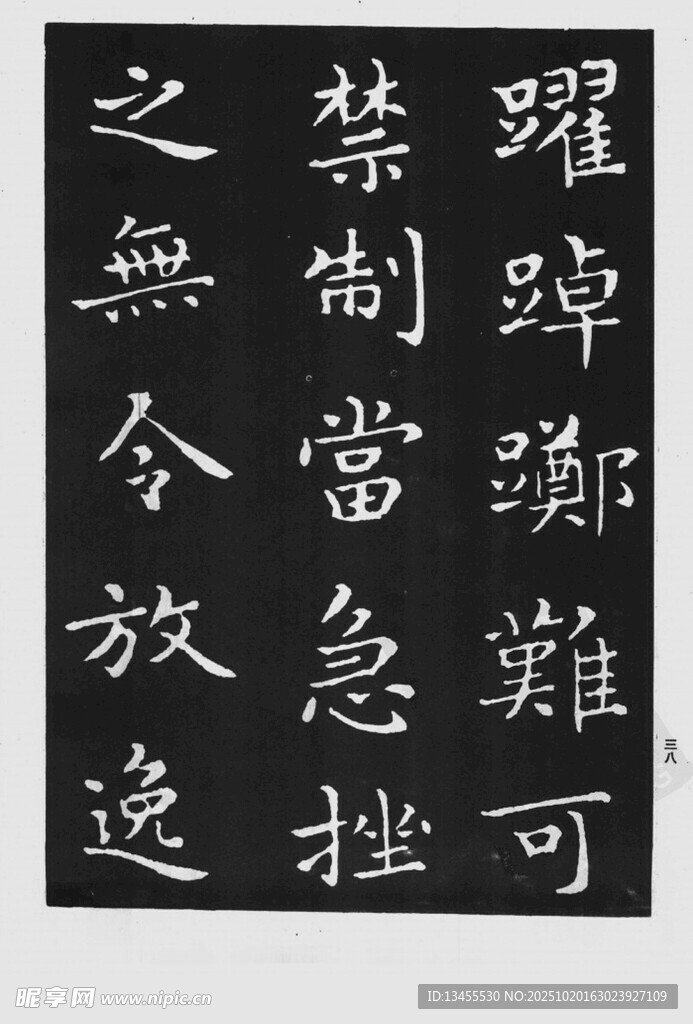 躍踔躑難可
禁制當急挫
之無令放逸
三八
昵享网 www.nipic.cn
ID:13455530 NO:20251020163023927109